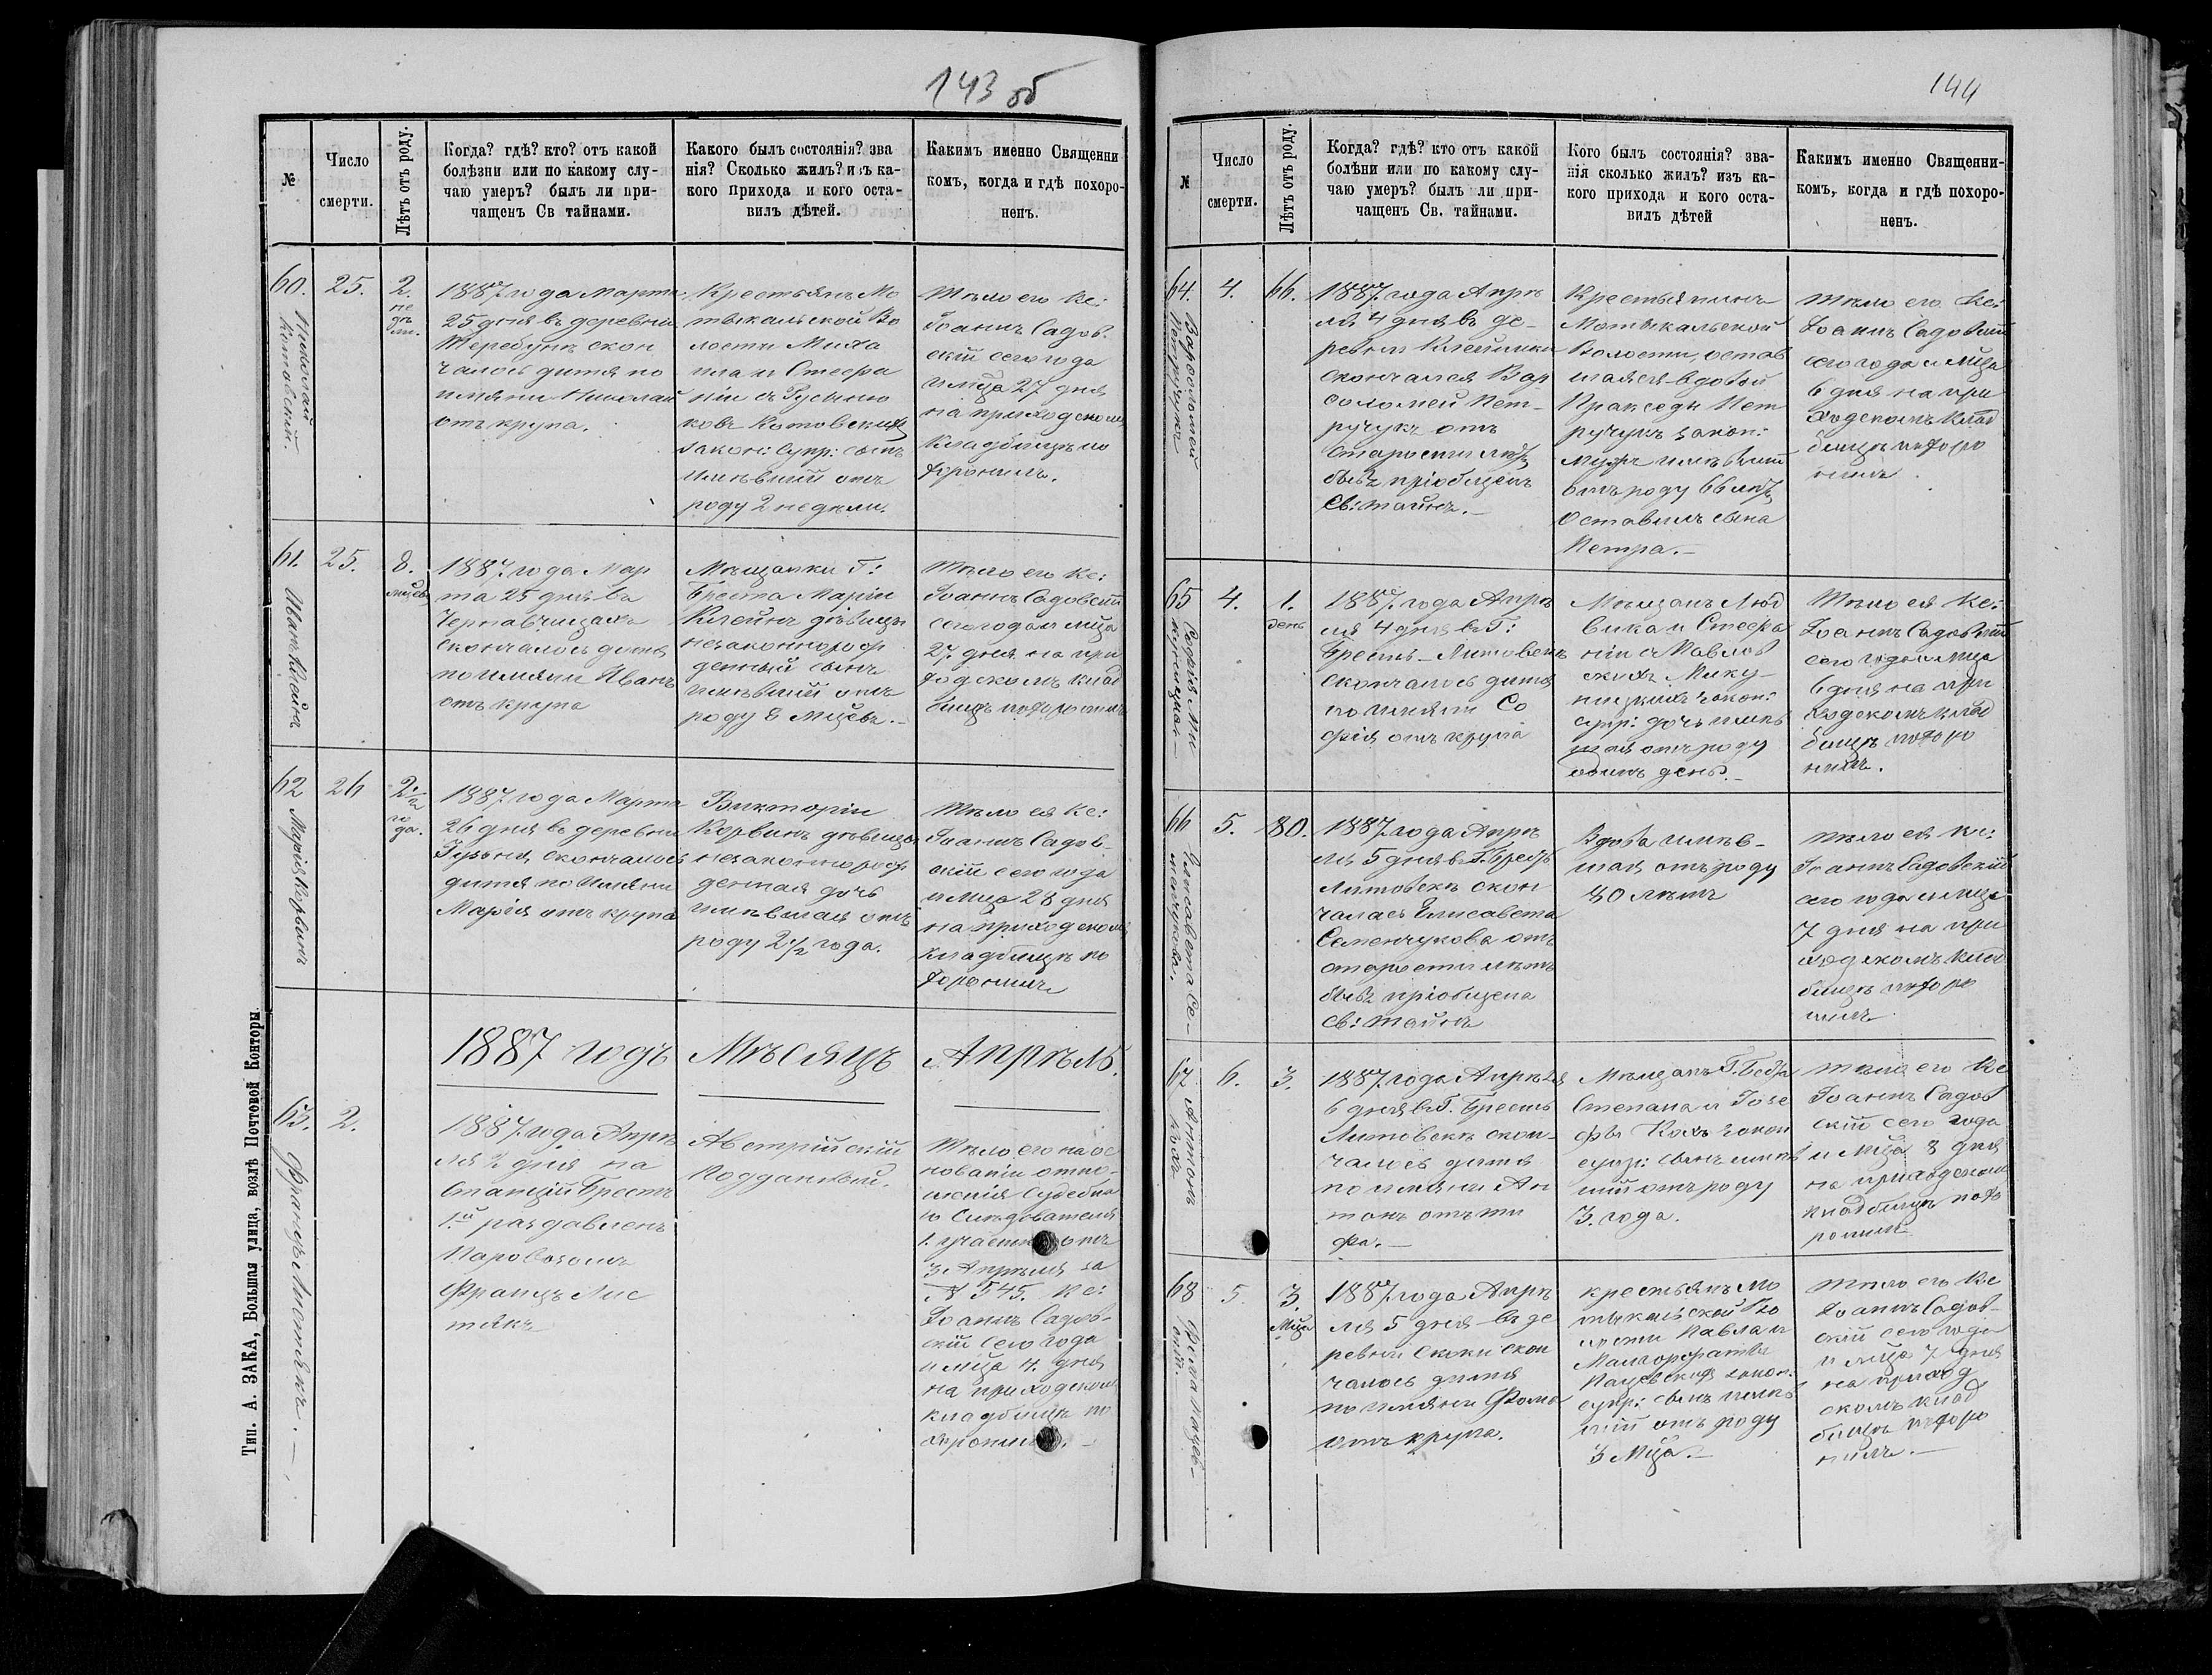 143 об
№
Число
смерти.
Лѣтъ отъ роду.
Когда? гдѣ? кто? отъ какой
болѣзни или по какому слу-
чаю умеръ? былъ ли при-
чащенъ Св тайнами.
Какого былъ состоянія? зва
нія? Сколько жилъ? изъ ка-
кого прихода и кого оста-
вилъ дѣтей.
Какимъ именно Священни
комъ, когда и гдѣ похоро-
ненъ.
60.
Николай
Котовскій.
25.
2.
не
дѣ
ли.
1887 года Марта
25 дня въ деревни
Теребунь скон
чалось дитя по
имяни Николай
отъ крупа.
Крестьянъ Мо
тыкальской Во
лости Миха
ила и Стефа
ніи съ Русино
ковъ Котовскихъ
закон: супр: сынъ
имѣвшій отъ
роду 2 недѣли.
Тѣло его Кс:
Іоаннъ Садов-
скій сего года
и мца 27 дня
на приходскомъ
кладбищѣ по
хоронилъ.
61.
Иванъ Клейнъ
25.
8.
мцевъ
1887 года Мар
та 25 дня въ
Чернавчицахъ
скончалось дитя
по имяни Иванъ
отъ крупа
Мѣщанки Г:
Бреста Маріи
Клейнъ дѣвицы
незаконнорож
денный сынъ
имѣвшій отъ
роду 8 мцевъ.
Тѣло его Кс:
Іоаннъ Садовскій
сего года и мца
27 дня на при
ходскомъ клад
бищѣ похоронилъ
62
Марія Корвинъ
26
2 1/2
го
да.
1887 года Марта
26 дня въ деревни
скончалось
дитя по имяни
Марія отъ крупа
Викторіи
Корвинъ дѣвицы
незаконнорож
денная дочь
имѣвшая отъ
роду 2 1/2 года.
Тѣло ея Кс:
Іоаннъ Садов-
скій сего года
и мца 28 дня
на приходскомъ
кладбищѣ по
хоронилъ
1887 годъ Мѣсяцъ Апрѣль.
63.
Францъ Листякъ.
2.
1887 года Апрѣ
ля 2 дня на
Станціи Брестъ
1й раздавленъ
Паровозомъ
Францъ Лис
тякъ
Австрійскій
Подданный.
Тѣло его на ос
нованіи отно-
шенія Судебна
го Слѣдователя
1. участка отъ
3 Апрѣля за
№ 545. Кс:
Іоаннъ Садов-
скій сего года
и мца 4. дня
на приходскомъ
кладбищѣ по
хоронилъ.
Тип. А. ЗАКА, Большая улица, возлѣ Почтовой Конторы.
144
№
Число
смерти.
Лѣтъ отъ роду.
Когда? гдѣ? кто отъ какой
болѣни или по какому слу-
чаю умеръ? былъ ли при-
чащенъ Св. тайнами.
Кого былъ состоянія? зва-
нія сколько жилъ? изъ ка-
кого прихода и кого оста-
вилъ дѣтей
Какимъ именно Священни-
комъ, когда и гдѣ похоро-
ненъ.
64.
Варфоломей
Петручукъ
4.
66.
1887 года Апрѣ
ля 4 дня въ де-
ревни Клейники
скончался Вар
фоломей Пет-
ручукъ отъ
старости лѣтъ
бывъ пріобщенъ
Св: Тайнъ.
Крестьянинъ
Мотыкальской
Волости, остав
шаяся вдовой
Пракседы Пет
ручукъ закон:
мужъ имѣвшій
отъ роду 66 лѣтъ
Оставилъ сына
Петра.
Тѣло его Кс:
Іоаннъ Садовскій
сего года и мца
6 дня на при
ходскомъ клад
бищѣ похоро
нилъ
65
Софія Ми
4.
1.
день
1887 года Апрѣ
ля 4 дня въ Г:
Брестъ-Литовскѣ
скончалось дитя
по имяни Со
фія отъ крупа
Мѣщанъ Люд
вика и Стефа
ніи съ Павлов
скихъ Мику-
закон:
супр: дочь имѣв
шая отъ роду
одинъ день.
Тѣло ея Кс:
Іоаннъ Садовскій
сего года и мца
6 дня на при
ходскомъ клад
бищѣ похоро
нилъ.
66
Елисавета Се-
менчукова.
5.
80.
1887 года Апрѣ
ля 5 дня въ Г. Брестъ
Литовскѣ скон
чалась Елисавета
Семенчукова отъ
старости лѣтъ
бывъ пріобщена
Св: Тайнъ
Вдова имѣв-
шая отъ роду
80 лѣтъ
Тѣло ея Кс:
Іоаннъ Садовскій
сего года и мца
7 дня на при
ходскомъ клад
бищѣ похоро
нилъ
67
Антонъ
Кохъ.
6.
3.
1887 года Апрѣля
6 дня въ Г. Брестъ
Литовскѣ скон-
чалось дитя
по имяни Ан
тонъ отъ ти
фа.
Мѣщанъ Г.
Степана и Іозе
фы Кохъ закон
супр: сынъ имѣв
шій отъ роду
3. года.
Тѣло его Кс
Іоаннъ Садов
скій сего года
и мца 8 дня
на приходскомъ
кладбищѣ похо
ронилъ
68
5
3.
Мца
1887 года Апрѣ
ля 5 дня въ де
ревни Скоки скон
чалось дитя
по имяни Фома
отъ крупа.
Крестьянъ Мо
тыкальской Во
лости Павла и
Малгоржаты
закон:
супр: сынъ имѣв
шій отъ роду
3 Мца.
Тѣло его Кс
Іоаннъ Садов-
скій сего года
и мца 7 дня
на приход
скомъ клад
бищѣ похоро
нилъ.